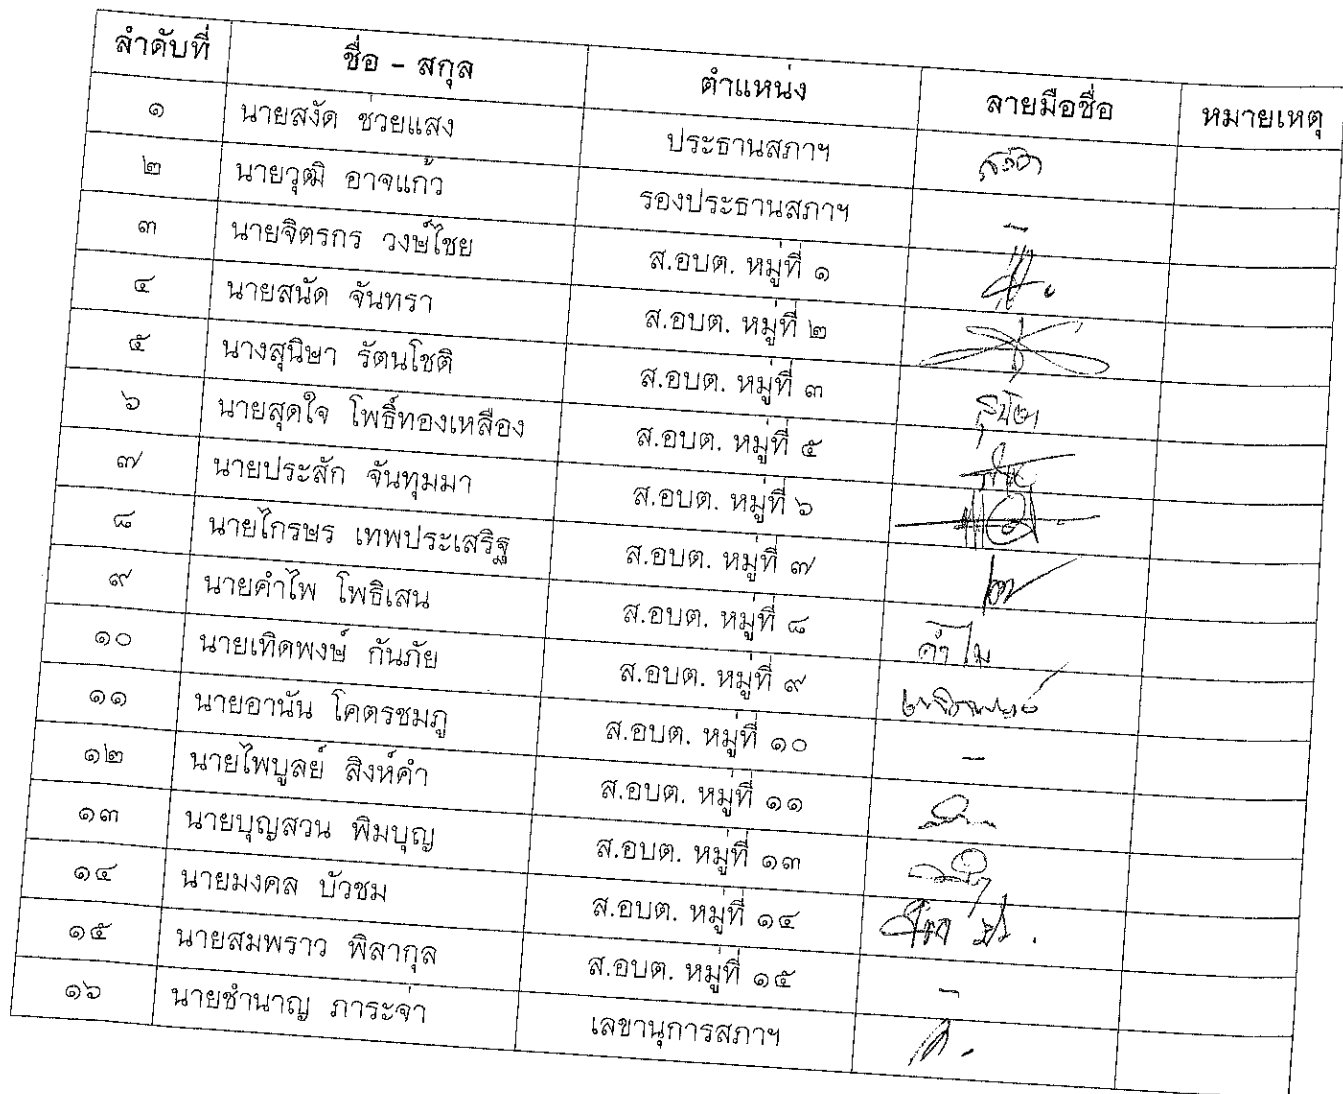 ลำดับที่ ชื่อ - สกุล ตำแหน่ง ลายมือชื่อ หมายเหตุ
๑ นายสงัด ช่วยแสง ประธานสภาฯ
๒ นายวุฒิ อาจแก้ว รองประธานสภาฯ -
๓ นายจิตรกร วงษ์ไชย ส.อบต. หมู่ที่ ๑
๔ นายสนัด จันทรา ส.อบต. หมู่ที่ ๒
๕ นางสุนิษา รัตนโชติ ส.อบต. หมู่ที่ ๓ สุนิษา
๖ นายสุดใจ โพธิ์ทองเหลือง ส.อบต. หมู่ที่ ๕
๗ นายประสัก จันทุมมา ส.อบต. หมู่ที่ ๖
๘ นายไกรษร เทพประเสริฐ ส.อบต. หมู่ที่ ๗
๙ นายคำไพ โพธิเสน ส.อบต. หมู่ที่ ๘ คำไพ
๑๐ นายเทิดพงษ์ กันภัย ส.อบต. หมู่ที่ ๙
๑๑ นายอานัน โคตรชมภู ส.อบต. หมู่ที่ ๑๐ -
๑๒ นายไพบูลย์ สิงห์คำ ส.อบต. หมู่ที่ ๑๑
๑๓ นายบุญสวน พิมบุญ ส.อบต. หมู่ที่ ๑๓
๑๔ นายมงคล บัวชม ส.อบต. หมู่ที่ ๑๔
๑๕ นายสมพราว พิลากุล ส.อบต. หมู่ที่ ๑๕ -
๑๖ นายชำนาญ ภาระจ่า เลขานุการสภาฯ